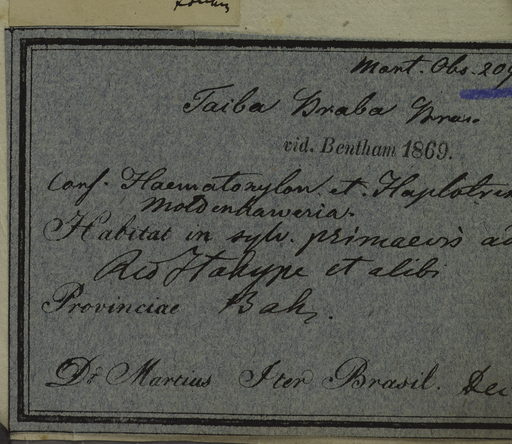 Mart. Obs. 209
Taiba Braba Bras.
vid. Bentham 1869.
Conf. Haematoxylon et Haplotris
Moldenhaweria.
Habitat in sylv. primaevis ad
Rio Itahype et alibi
Provinciae Bah.
Dr Martius Iter Brasil. Dec